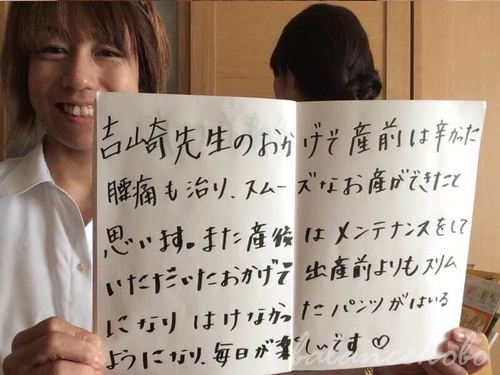 吉崎先生のおかげで産前は辛かった
腰痛も治り、スムーズなお産ができたと
思います。また産後はメンテナンスをして
いただいたおかげで出産前よりもスリム
になりはけなかったパンツがはいる
ようになり、毎日が楽しいです♡
balancekobo